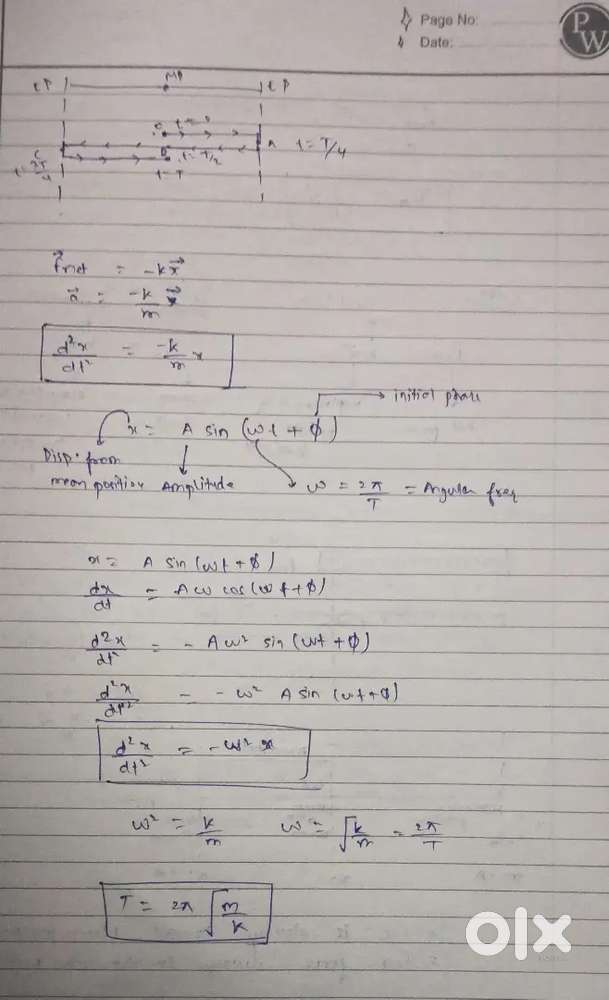 Page No:
Date:
PW
EP MP EP
t=0
A t=T/4
t=T/2
C
t=3T/4
t=T
F⃗net = -kx⃗
a⃗ = -k/m x⃗
d²x/dt² = -k/m x
initial phase
x = A sin (ωt + ϕ)
Disp. from
mean position Amplitude
ω = 2π/T = Angular freq
x = A sin(ωt + ϕ)
dx/dt = Aω cos(ωt + ϕ)
d2x/dt² = - Aω² sin(ωt + ϕ)
d²x/dt² = - ω² A sin(ωt + ϕ)
d²x/dt² = -ω² x
ω² = k/m ω = √k/m = 2π/T
T = 2π √m/k
olx